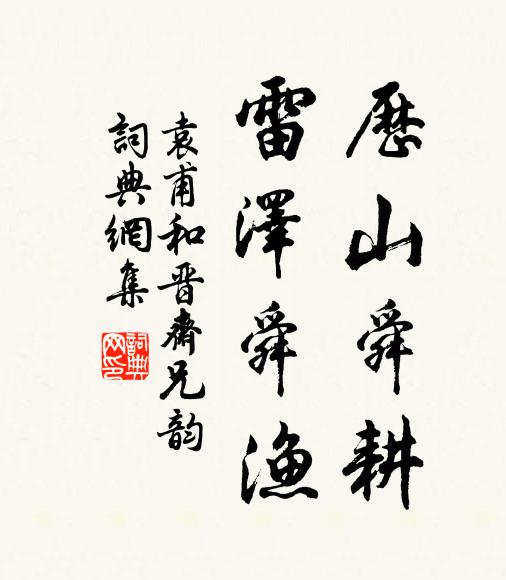 歷山舜耕
雷澤舜漁
袁甫和晋齋兄韵
詞典網集
詞典网印